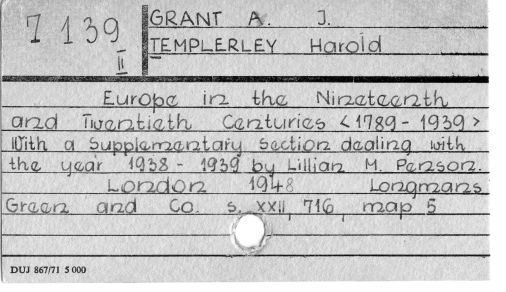 7 139
II
GRANT A. J.
TEMPLERLEY Harold
Europe in the Nineteenth
and Twentieth Centuries <1789-1939>
With a Supplementary Section dealing with
the year 1938-1939 by Lillian M. Penson.
London 1948 Longmans
Green and Co. s. XXII, 716, map 5
DUJ 867/71 5 000